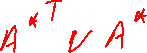 A*ᵀ V A*